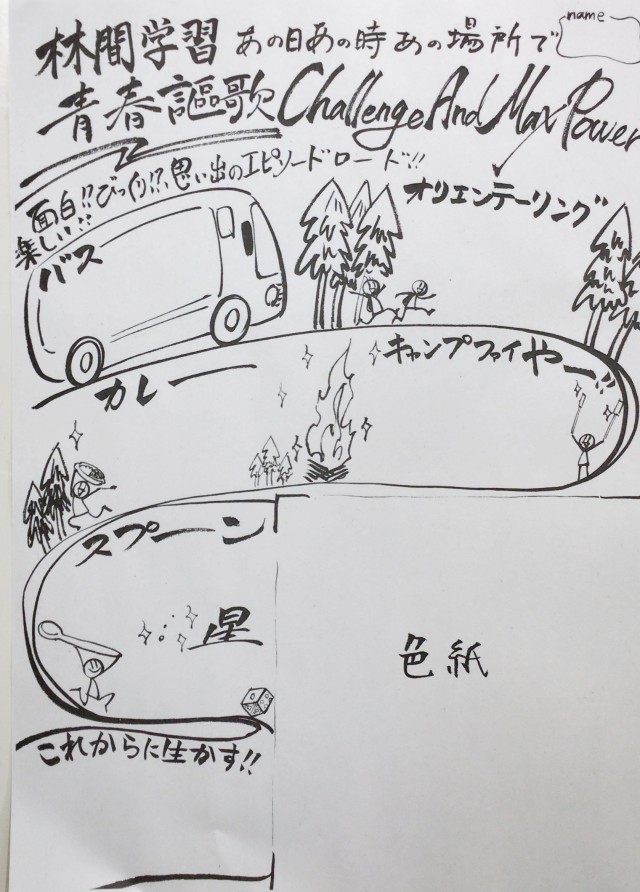 name
林間学習 あの日あの時あの場所で
青春謳歌 Challenge And Max Power
面白!!びっくり!!、思い出のエピソードロード!!
楽しい!!
オリエンテーリング
バス
キャンプファイやー!!
カレー
スプーン
星
色紙
これからに生かす!!